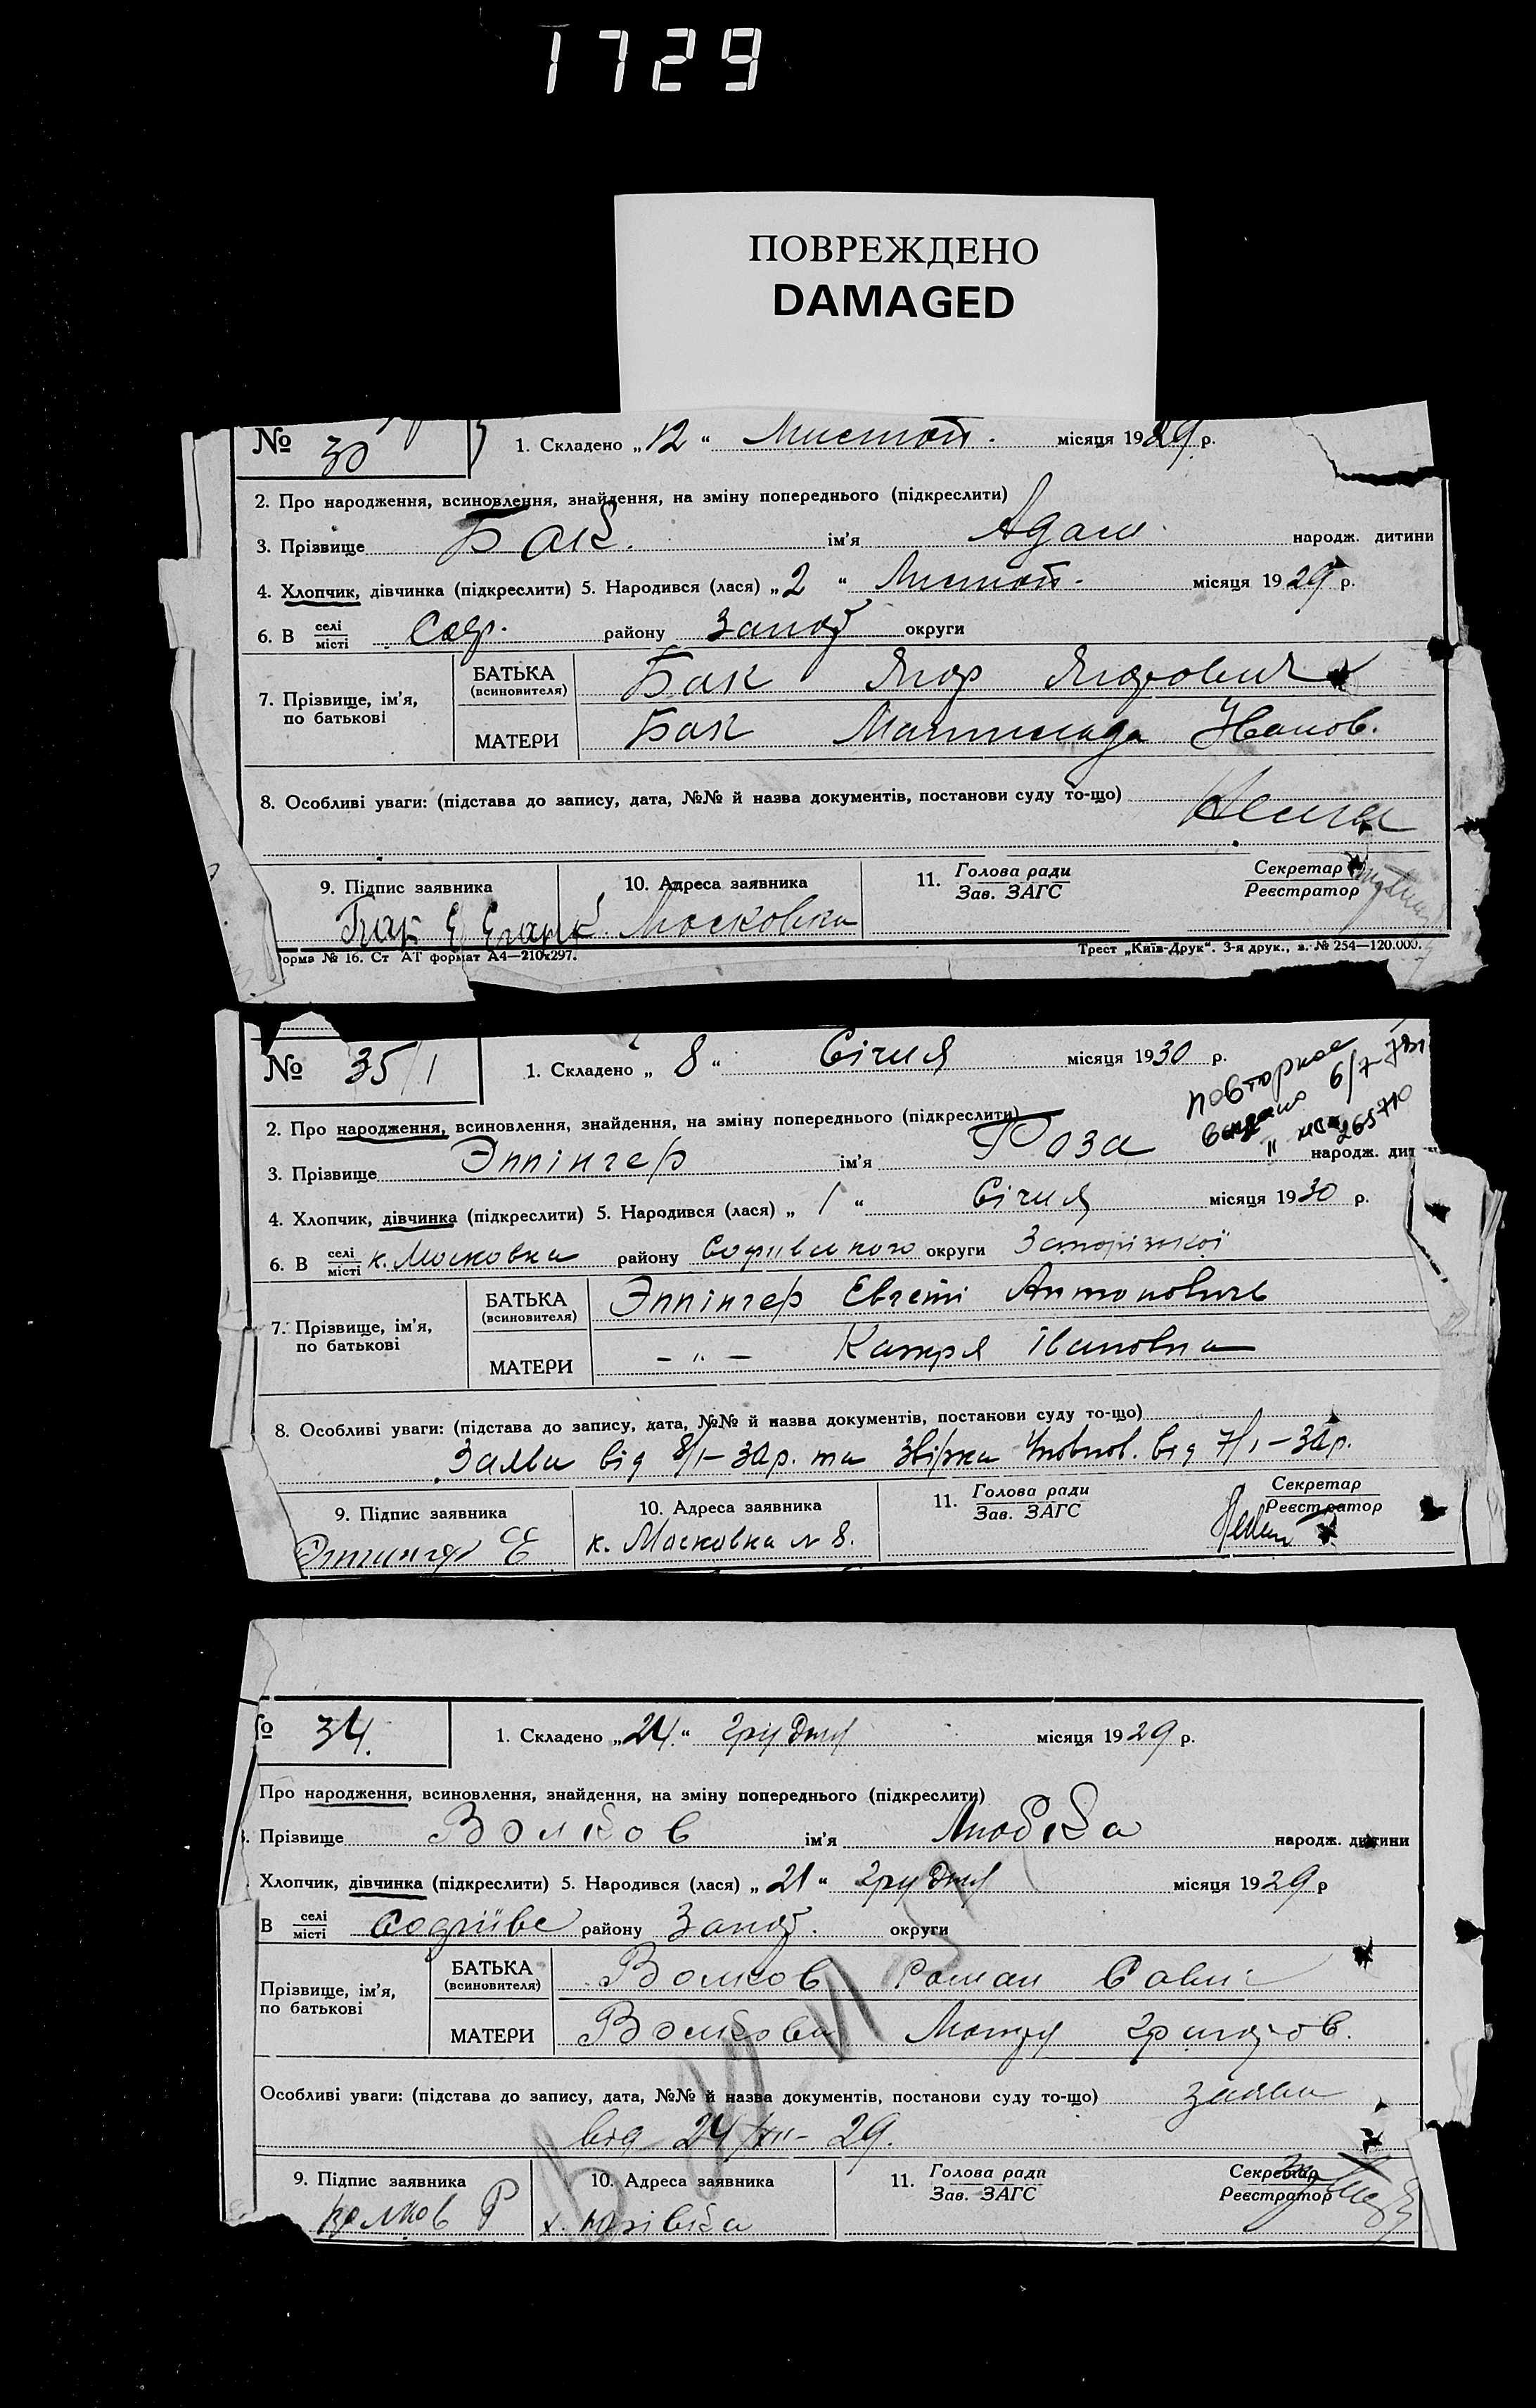 1729
ПОВРЕЖДЕНО
DAMAGED
№ 30
1. Складено „12“ Листоп. місяця 1929 р.
2. Про народження, всиновлення, знайдення, на зміну попереднього (підкреслити)
3. Прізвище Бак. ім'я Адам народж. дитини
4. Хлопчик, дівчинка (підкреслити) 5. Народився (лася) „2“ Листоп. місяця 1929 р.
6. В селі місті Соф. району Запор округи
7. Прізвище, ім'я, по батькові
БАТЬКА (всиновителя) Бак Ягор Ягорович
МАТЕРИ Бак Матильда Иванов.
8. Особливі уваги: (підстава до запису, дата, №№ й назва документів, постанови суду то-що)
9. Підпис заявника
10. Адреса заявника Московка
11. Голова ради Зав. ЗАГС
Секретар Реєстратор
форма № 16. Ст АТ формат А4—210x297.
Трест „Київ-Друк“. 3-я друк., з. № 254—120.000.
№ 35/1
1. Складено „8“ Січня місяця 1930 р.
повторное
выдано 6/7
265710
2. Про народження, всиновлення, знайдення, на зміну попереднього (підкреслити)
3. Прізвище Эппінгер ім'я Роза народж. дит
4. Хлопчик, дівчинка (підкреслити) 5. Народився (лася) „1“ Січня місяця 1930 р.
6. В селі місті к. Московка району Софиївського округи Запорізької
7. Прізвище, ім'я, по батькові
БАТЬКА (всиновителя) Эппінгер Евгені Антонович
МАТЕРИ — „ — Катря Івановна
8. Особливі уваги: (підстава до запису, дата, №№ й назва документів, постанови суду то-що)
Заява від 8/1—30р. та Звірка Уповнов. від 7/1—30р.
9. Підпис заявника Эппингер Е
10. Адреса заявника к. Московка № 8.
11. Голова ради Зав. ЗАГС
Секретар Реєстратор
№ 34.
1. Складено „24.“ грудня місяця 1929 р.
Про народження, всиновлення, знайдення, на зміну попереднього (підкреслити)
Прізвище Волков ім'я Любка народж. дитини
Хлопчик, дівчинка (підкреслити) 5. Народився (лася) „21“ грудня місяця 1929 р
В селі місті Софіївс району Запор. округи
Прізвище, ім'я, по батькові
БАТЬКА (всиновителя) Волков Роман Савич
МАТЕРИ Волкова Мотря Григоров.
Особливі уваги: (підстава до запису, дата, №№ й назва документів, постанови суду то-що) заява
від 24/XII— 29.
9. Підпис заявника Волков Р
10. Адреса заявника х.
11. Голова ради Зав. ЗАГС
Секретар Реєстратор